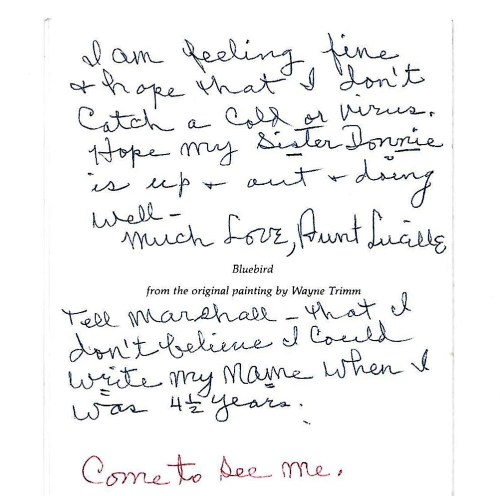 I am feeling fine
& hope that I don't
Catch a Cold or virus.
Hope my Sister Donnie
is up & out & doing
well -
Much Love, Aunt Lucille
Bluebird
from the original painting by Wayne Trimm
Tell Marshall - that I
don't believe I Could
write my Name when I
was 4½ years.
Come to See Me.